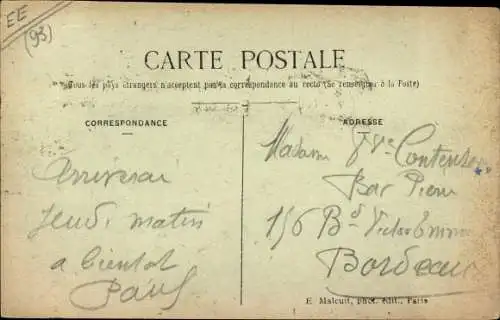 EE
(93)
CARTE POSTALE
Tous les pays étrangers n'acceptent pas la correspondance au recto (Se renseigner à la Poste)
CORRESPONDANCE
ADRESSE
Arriverai
jeudi matin
a bientot
Paul
Madame Vve
Bar Pierre
156 Bd Victor Emm
Bordeaux
E. Malcuit, phot. édit., Paris